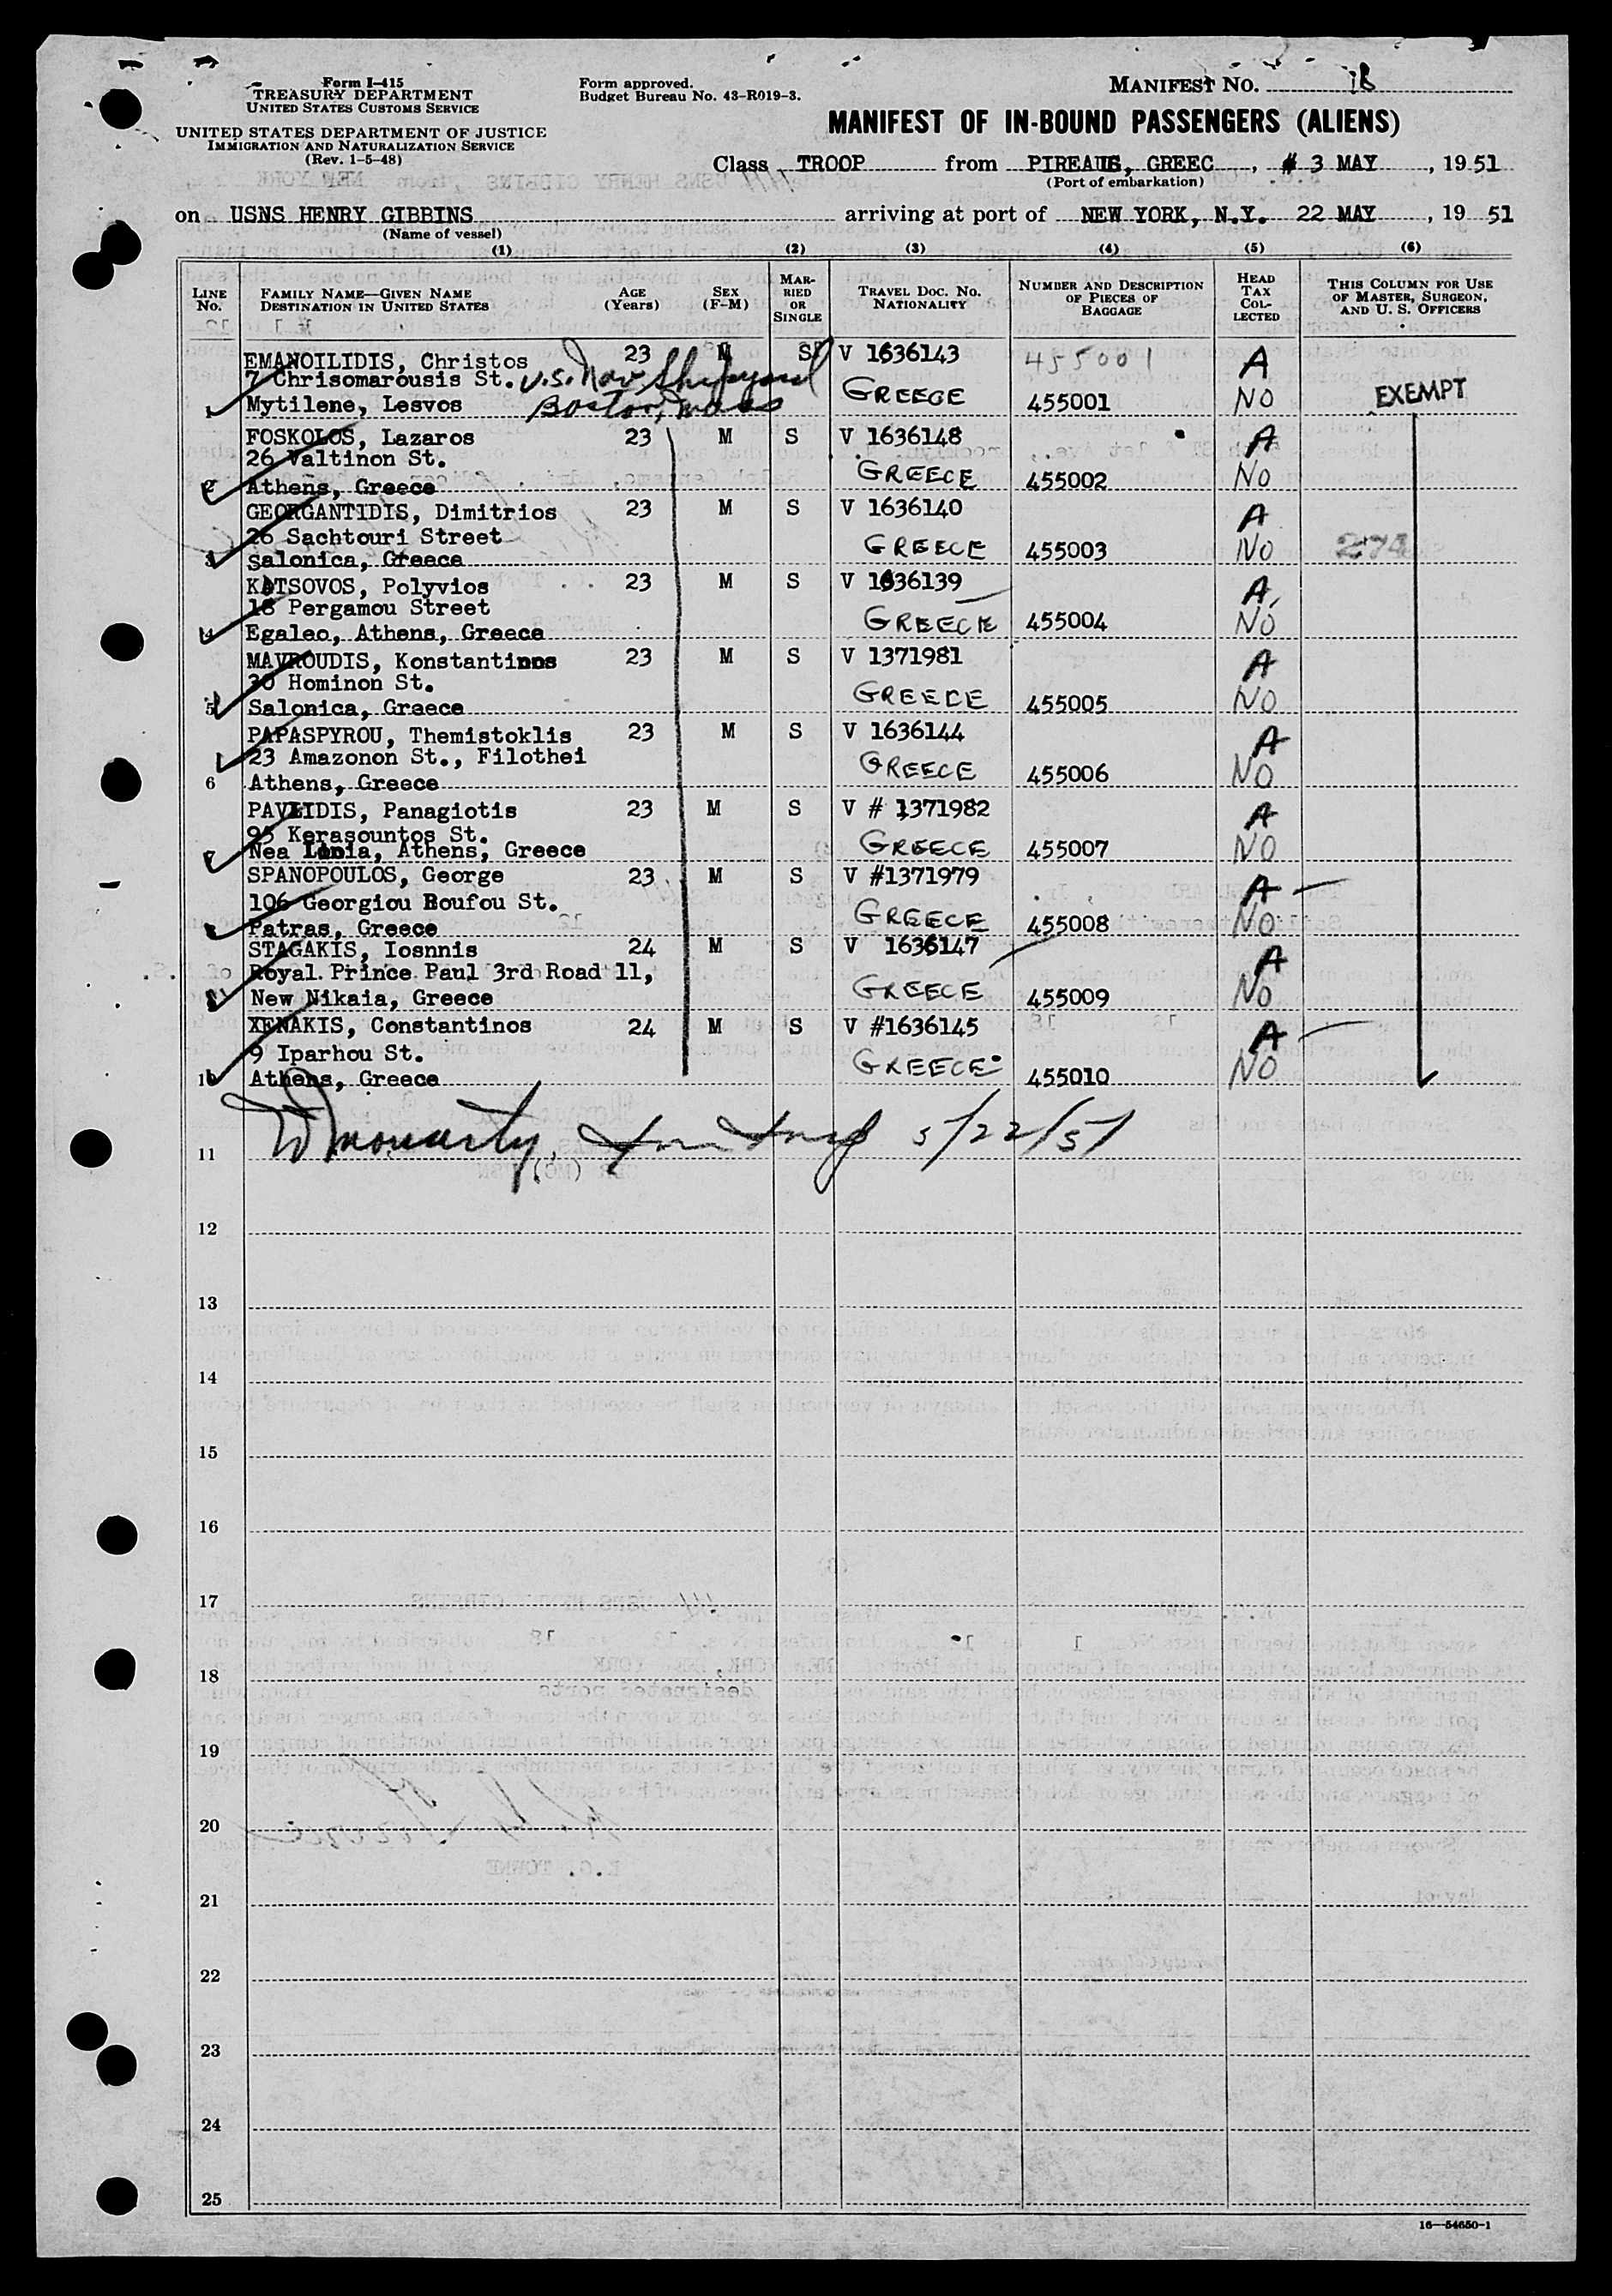 Form I-415
TREASURY DEPARTMENT
UNITED STATES CUSTOMS SERVICE
UNITED STATES DEPARTMENT OF JUSTICE
IMMIGRATION AND NATURALIZATION SERVICE
(Rev. 1-5-48)
Form approved.
Budget Bureau No. 43-R019-3.
MANIFEST NO. 18
MANIFEST OF IN-BOUND PASSENGERS (ALIENS)
Class TROOP from PIREAUS, GREEC, 3 MAY, 1951
(Port of embarkation)
on USNS HENRY GIBBINS arriving at port of NEW YORK, N.Y. 22 MAY, 19 51
(Name of vessel)
(1) (2) (3) (4) (5) (6)
LINE No. FAMILY NAME—GIVEN NAME DESTINATION IN UNITED STATES AGE (Years) SEX (F-M) MARRIED OR SINGLE TRAVEL DOC. NO. NATIONALITY NUMBER AND DESCRIPTION OF PIECES OF BAGGAGE HEAD TAX COLLECTED THIS COLUMN FOR USE OF MASTER, SURGEON, AND U. S. OFFICERS
EMANOILIDIS, Christos 23 M S V 1636143 455001 A
7 Chrisomarousis St. U.S. Nav. Shipyard
1 Mytilene, Lesvos Boston, Mass GREECE 455001 NO EXEMPT
FOSKOLOS, Lazaros 23 M S V 1636148 A
26 Valtinon St.
2 Athens, Greece GREECE 455002 NO
GEORGANTIDIS, Dimitrios 23 M S V 1636140 A
26 Sachtouri Street
3 Salonica, Greece GREECE 455003 NO 274
KATSOVOS, Polyvios 23 M S V 1636139 A
18 Pergamou Street
4 Egaleo, Athens, Greece GREECE 455004 NO
MAVROUDIS, Konstantinos 23 M S V 1371981 A
30 Hominon St.
5 Salonica, Greece GREECE 455005 NO
PAPASPYROU, Themistoklis 23 M S V 1636144 A
23 Amazonon St., Filothei
6 Athens, Greece GREECE 455006 NO
PAVLIDIS, Panagiotis 23 M S V # 1371982 A
95 Kerasountos St.
7 Nea Athens, Greece GREECE 455007 NO
SPANOPOULOS, George 23 M S V #1371979 A
106 Georgiou Boufou St.
8 Patras, Greece GREECE 455008 NO
STAGAKIS, Iosnnis 24 M S V 1636147 A
Royal Prince Paul 3rd Road 11,
9 New Nikaia, Greece GREECE 455009 NO
XENAKIS, Constantinos 24 M S V #1636145 A
9 Iparhou St.
10 Athens, Greece GREECE 455010 NO
5/22/51
11
12
13
14
15
16
17
18
19
20
21
22
23
24
25
16—54650-1